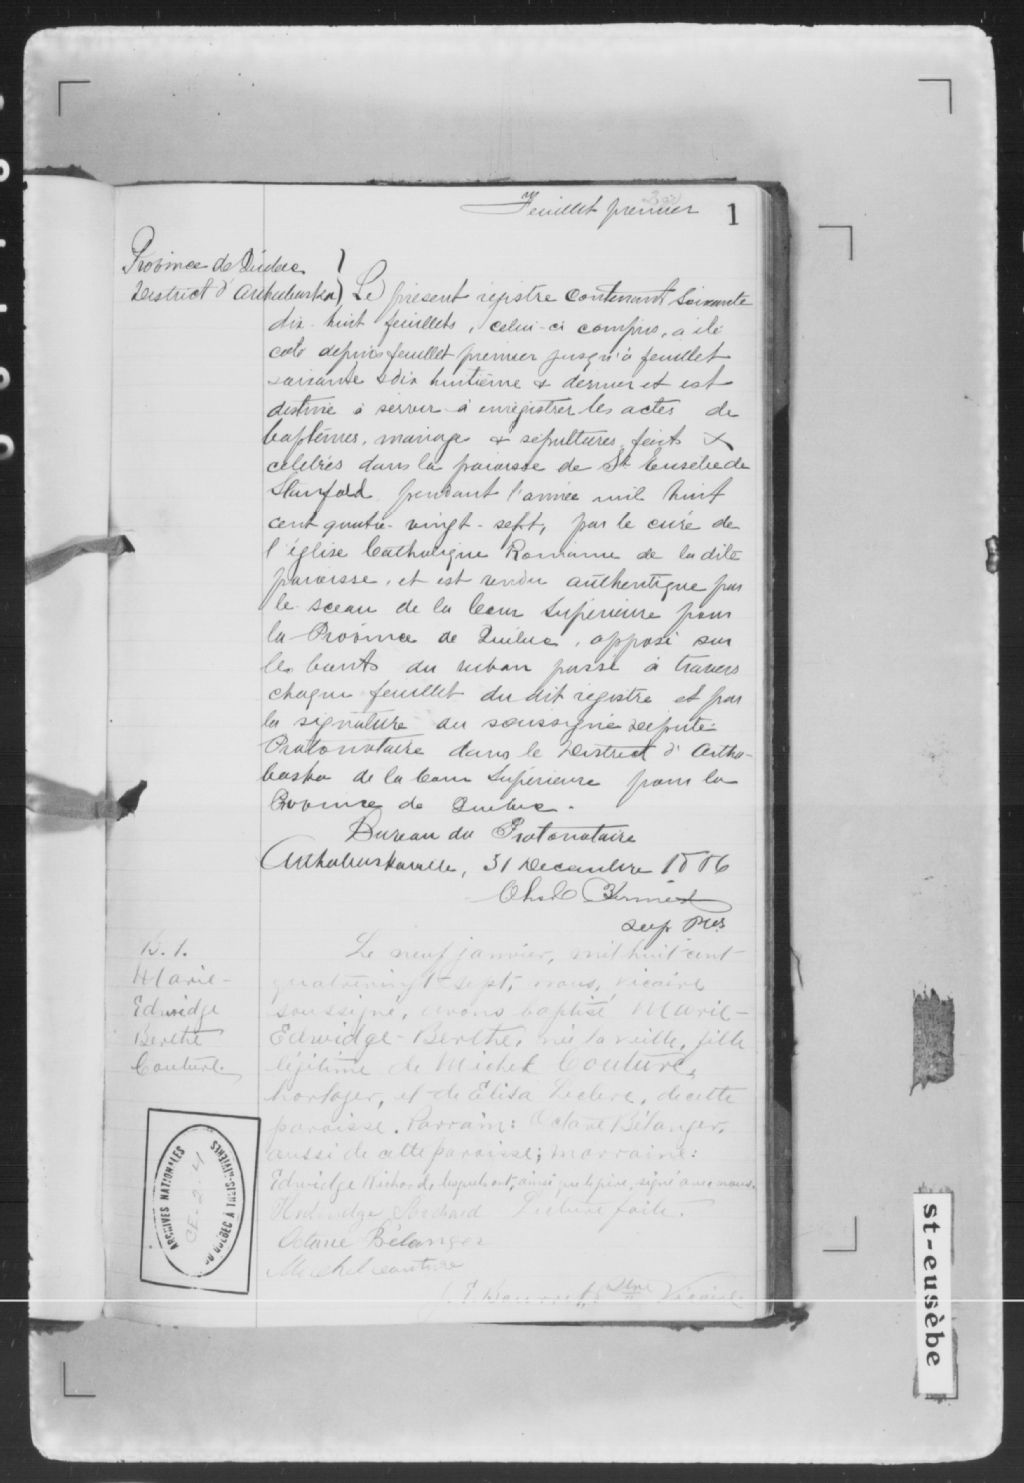 Feuillet premier
1
Province de Québec
District d'Arthabaska) Le présent registre contenant soixante
dix-huit feuillets, celui-ci compris, a été
coté depuis feuillet premier jusqu'à feuillet
soixante & dix huitième & dernier et est
destiné à servir à enregistrer les actes de
baptêmes, mariage & sépultures faits &
célébrés dans la paroisse de St Eusèbe de
Stanfold pendant l'année mil huit
cent quatre-vingt-sept, par le curé de
l'église Catholique Romaine de la dite
paroisse, et est rendu authentique par
le sceau de la Cour Supérieure pour
la Province de Québec, apposé sur
les bouts du ruban passé à travers
chaque feuillet du dit registre et par
la signature du soussigné Député
Protonotaire dans le District d'Artha-
baska de la Cour Supérieure pour la
Province de Québec.
Bureau du Protonotaire
Arthabaskaville, 31 Décembre 1886
Dep. Pro.
B. 1.
Marie-
Edwidge
Berthe
Couture.
Le neuf janvier, mil huit cent
quatrevingt-sept, nous, vicaire
soussigné, avons baptisé Marie-
Edwidge-Berthe, née la veille, fille
légitime de Michel Couture,
horloger, et de Elisa Leclerc, de cette
paroisse. Parrain: Octave Bélanger,
aussi de cette paroisse; marraine:
Edwidge Richard, lesquels ont, ainsi que le père, signé avec nous.
Lecture faite.
Octave Bélanger
Michel Couture
Ptre Vicaire
ARCHIVES NATIONALES
DU QUÉBEC À TROIS-RIVIÈRES
CE-2-4
st-eusèbe